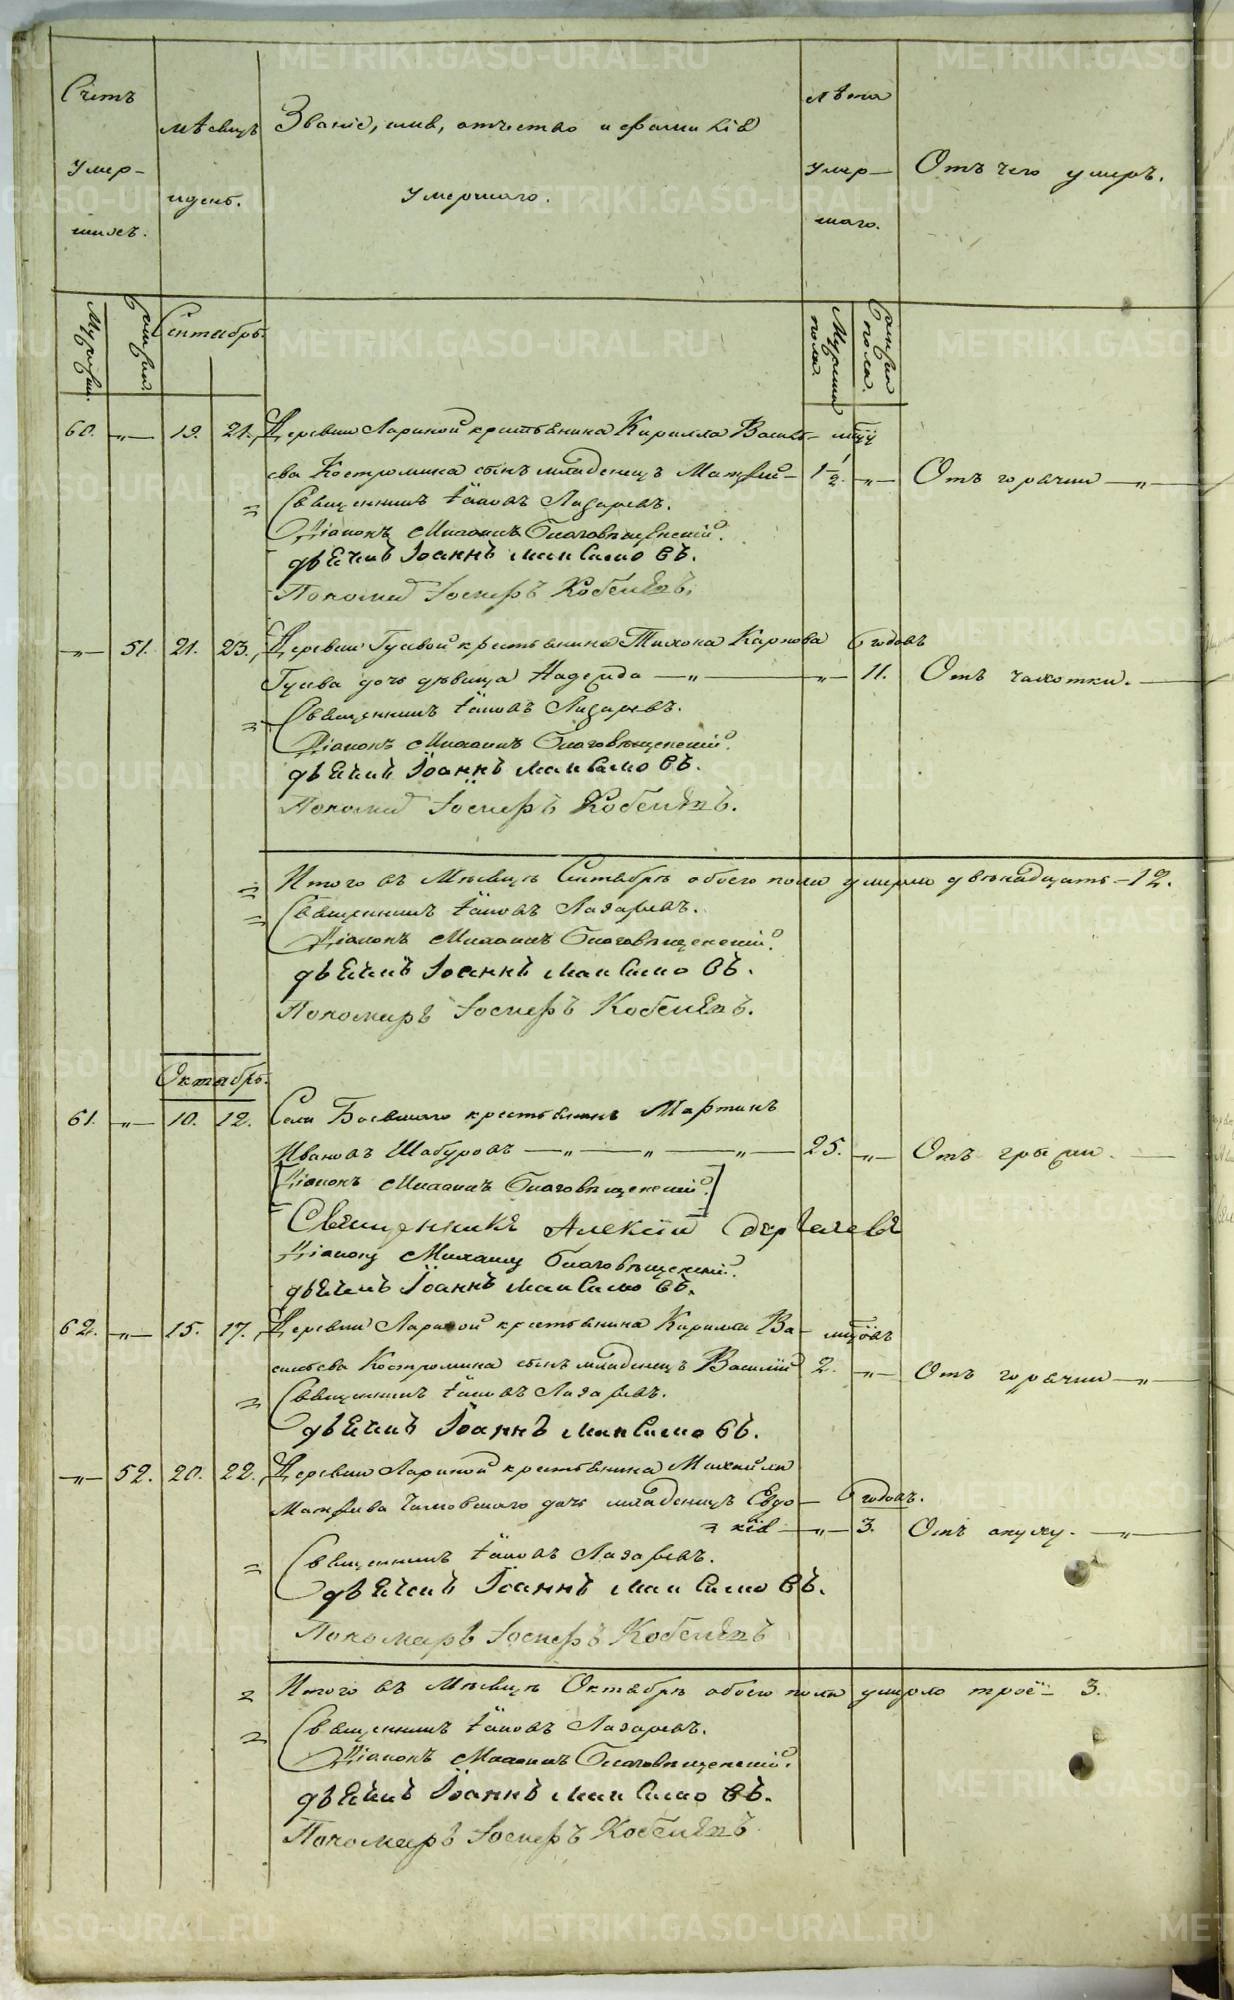 Счетъ
умер-
шихъ.
мѣсяцъ
и день.
Званіе, имя, отчество и фамилія
умершаго.
лѣта
умер-
шаго.
Отъ чего умеръ.
Мужеска.
Женска.
Сентябрь.
Мужеска пола.
Женска пола.
60. -"- 19. 21. Деревни Лариной крестьянина Кирилла Василь-
ева Костромина сынъ младенецъ Матѳей- 1 1/2. -"- Отъ горячки -"-
Священникъ Іаковъ Лазаревъ.
Діаконъ Михаилъ Благовѣщенскій.
дьячекъ Іоаннъ Максимовъ.
Пономарь Іосифъ
-"- 51. 21. 23. Деревни Гусевой крестьянина Тихона Карпова годовъ
Гусева дочь дѣвица Надежда -"- -"- 11. Отъ чахотки.
Священникъ Іаковъ Лазаревъ.
Діаконъ Михаилъ Благовѣщенскій.
дьячекъ Іоаннъ Максимовъ.
Пономарь Іосифъ
Итого въ Мѣсяцѣ Сентябрѣ обоего пола умерло двѣнадцать -12.
Священникъ Іаковъ Лазаревъ.
Діаконъ Михаилъ Благовѣщенскій.
дьячекъ Іоаннъ Максимовъ.
Пономарь Іосифъ
Октябрь.
61. -"- 10. 12. Села Боевскаго крестьянинъ Мартинъ
Ивановъ Шабуровъ -"- " -"- 25. -"- Отъ грыжи.
[Діаконъ Михаилъ Благовѣщенскій.]
Священникъ Алексій
Діаконъ Михаилъ Благовѣщенскій.
дьячекъ Іоаннъ Максимовъ.
62. -"- 15. 17. Деревни Лариной крестьянина Кирилла Ва-
сильева Костромина сынъ младенецъ Василій 2. -"- Отъ горячки -"-
Священникъ Іаковъ Лазаревъ.
дьячекъ Іоаннъ Максимовъ.
-"- 52. 20. 22. Деревни Лариной крестьянина Михаила
Матѳеева дочь младенецъ Евдо- годовъ.
кія -"- 3. Отъ
Священникъ Іаковъ Лазаревъ.
дьячекъ Іоаннъ Максимовъ.
Пономарь Іосифъ
Итого въ Мѣсяцѣ Октябрѣ обоего пола умерло трое - 3.
Священникъ Іаковъ Лазаревъ.
Діаконъ Михаилъ Благовѣщенскій.
дьячекъ Іоаннъ Максимовъ.
Пономарь Іосифъ
METRIKI.GASO-URAL.RU